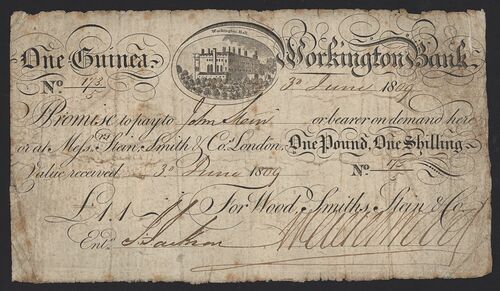 Workington Hall
One Guinea Workington Bank
No. 173/5 30 June 1809
I Promise to pay to John Stein or bearer on demand here
or at Messrs Stein, Smith & Co. London, One Pound, One Shilling
Value received 30 June 1809 No. 173/5
£1.1 For Wood, Smiths, Stein & Co.
Entd. J. Jackson